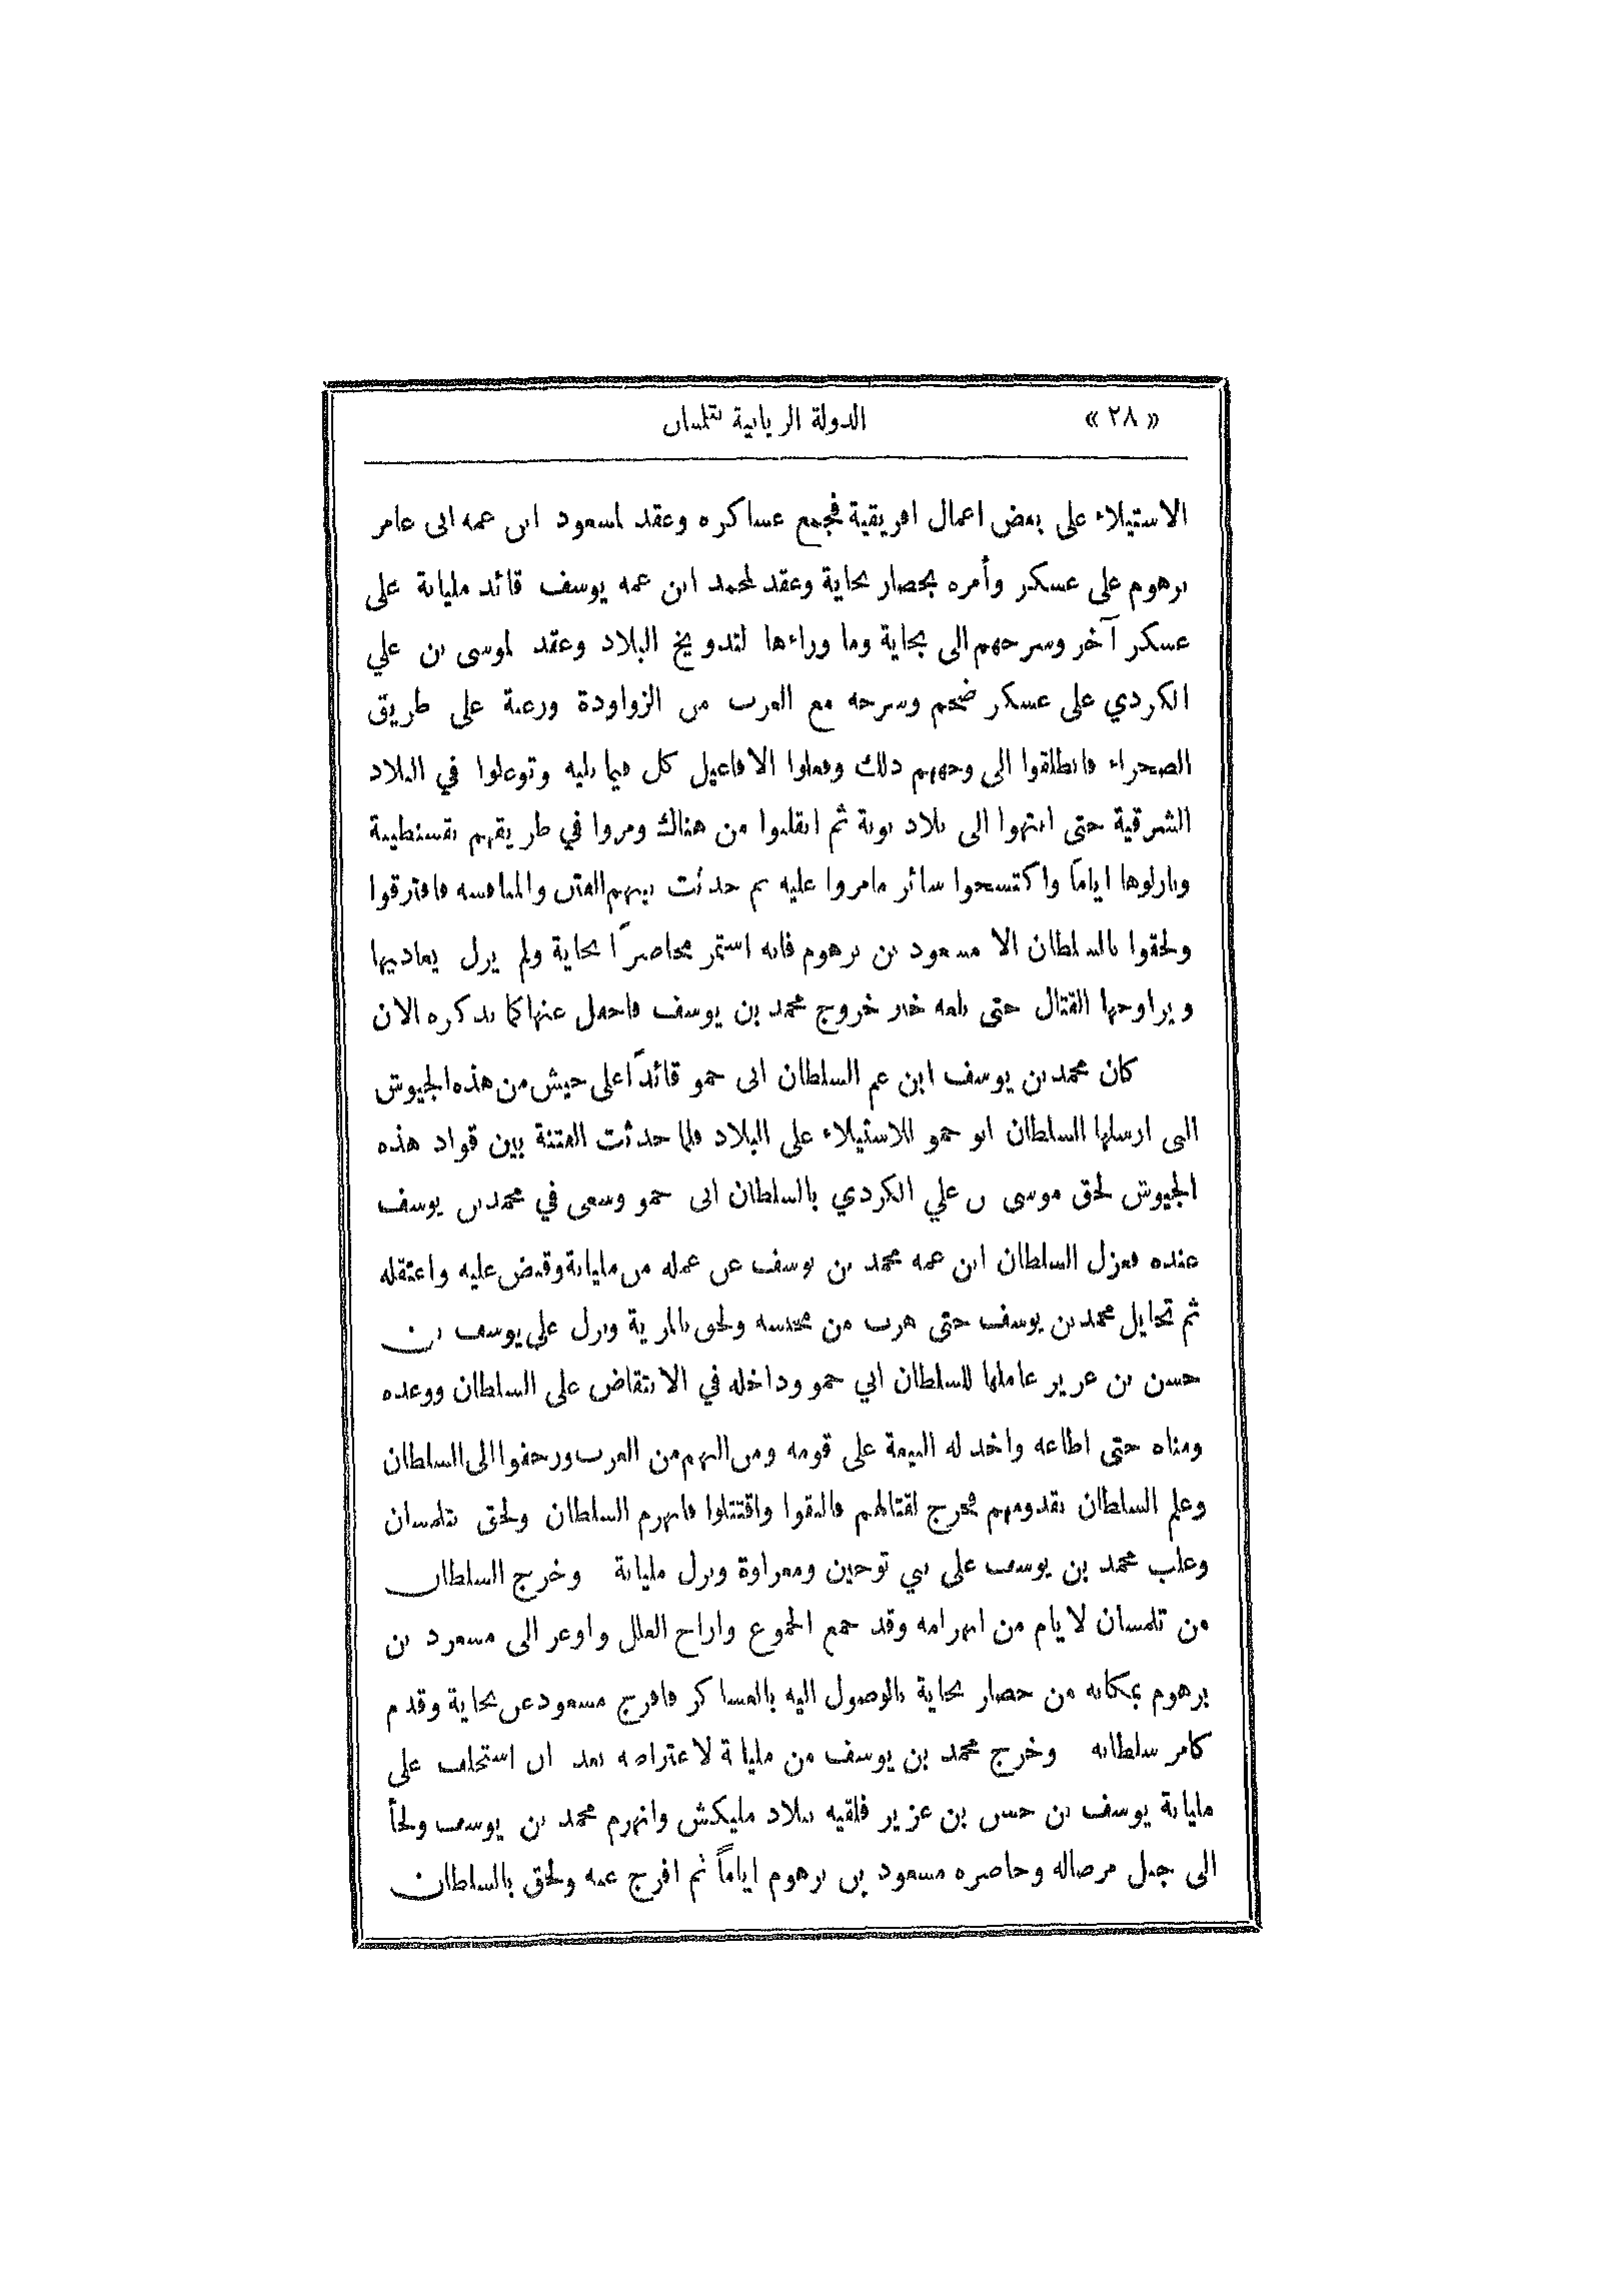 « ٢٨ » الدولة الزيانية بتلمسان
الاستيلاء على بعض اعمال افريقية فجمع عساكره وعقد لمسعود ابن عمه ابي عامر
برهوم على عسكر وأمره بحصار بجاية وعقد لمحمد ابن عمه يوسف قائد مليانة على
عسكر آخر وسرحهم الى بجاية وما وراءها لتدويخ البلاد وعقد لموسى بن علي
الكردي على عسكر ضخم وسرحه مع العرب من الزواودة وزغبة على طريق
الصحراء فانطلقوا الى وجههم ذلك وفعلوا الافاعيل كل فيما يليه وتوغلوا في البلاد
الشرقية حتى انتهوا الى بلاد بونة ثم انقلبوا من هناك ومروا في طريقهم بقسنطينة
ونازلوها اياماً واكتسحوا سائر ما مروا عليه ثم حدثت بينهم الفتن والمنافسه فافترقوا
ولحقوا بالسلطان الا مسعود بن برهوم فانه استمر محاصراً بجاية ولم يزل يغاديها
ويراوحها القتال حتى بلغه خبر خروج محمد بن يوسف فاجفل عنها كما نذكره الان
كان محمد بن يوسف ابن عم السلطان ابي حمو قائداً على جيش من هذه الجيوش
التي ارسلها السلطان ابو حمو للاستيلاء على البلاد فلما حدثت الفتنة بين قواد هذه
الجيوش لحق موسى بن علي الكردي بالسلطان ابي حمو وسعى في محمد بن يوسف
عنده فعزل السلطان ابن عمه محمد بن يوسف عن عمله من مليانة وقبض عليه واعتقله
ثم تحايل محمد بن يوسف حتى هرب من محبسه ولحق بالمرية ونزل على يوسف بن
حسن بن عزيز عاملها للسلطان ابي حمو وداخله في الانتقاض على السلطان ووعده
ومناه حتى اطاعه واخذ له البيعة على قومه ومن اليهم من العرب وزحفوا الى السلطان
وعلم السلطان بقدومهم فخرج لقتالهم فالتقوا واقتتلوا فانهزم السلطان ولحق بتلمسان
وغلب محمد بن يوسف على بني توجين ومغراوة ونزل مليانة وخرج السلطان
من تلمسان لايام من انهزامه وقد جمع الجموع وازاح العلل واوعز الى مسعود بن
برهوم بمكانه من حصار بجاية بالوصول اليه بالعساكر فافرج مسعود عن بجاية وقدم
كامر سلطانه وخرج محمد بن يوسف من مليانة لاعتراضه بعد ان استخلف على
مليانة يوسف بن حسن بن عزيز فلقيه ببلاد مليكش وانهزم محمد بن يوسف ولجأ
الى جبل مرصاله وحاصره مسعود بن برهوم اياماً ثم افرج عنه ولحق بالسلطان